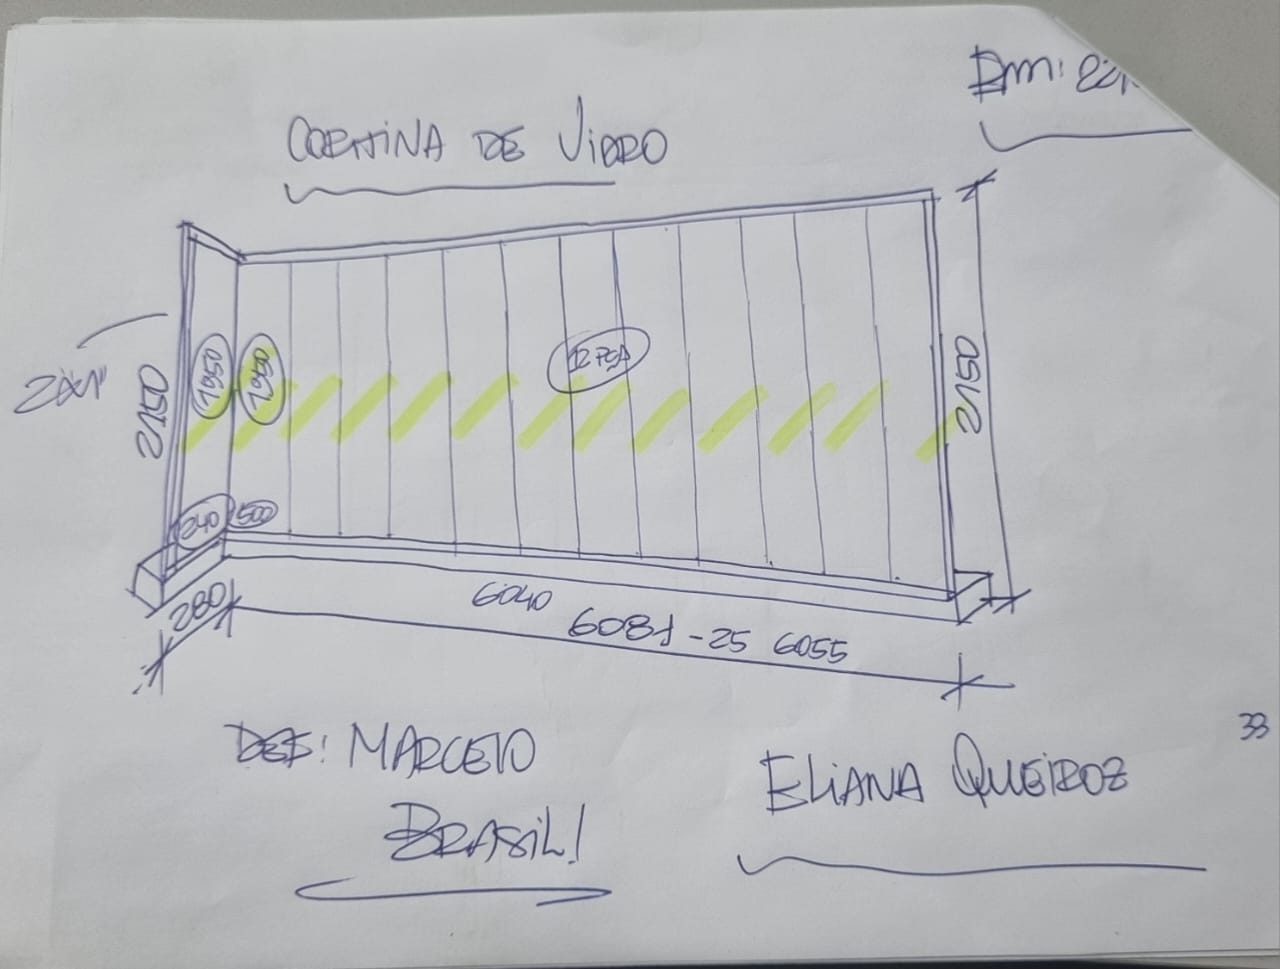 CORTINA DE VIDRO
2150
1950
1950
12 PÇA
2150
240
500
280
6040
6081 - 25 6055
33
DES: MARCELO
BRASIL!
ELIANA QUEIROZ